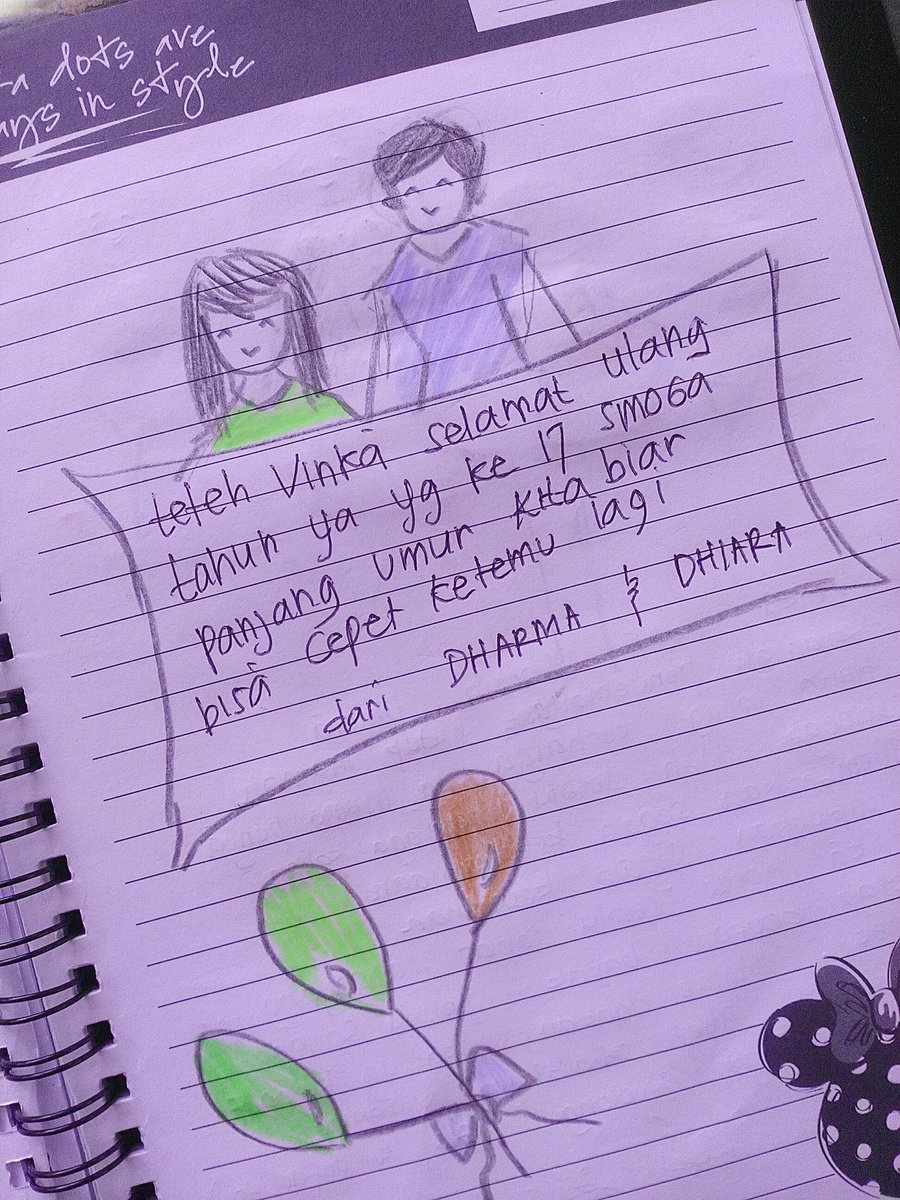 a dots are
ays in style
teteh Vinka selamat ulang
tahun ya yg ke 17 smoga
panjang umur kita biar
bisa cepet ketemu lagi
dari DHARMA & DHIARA